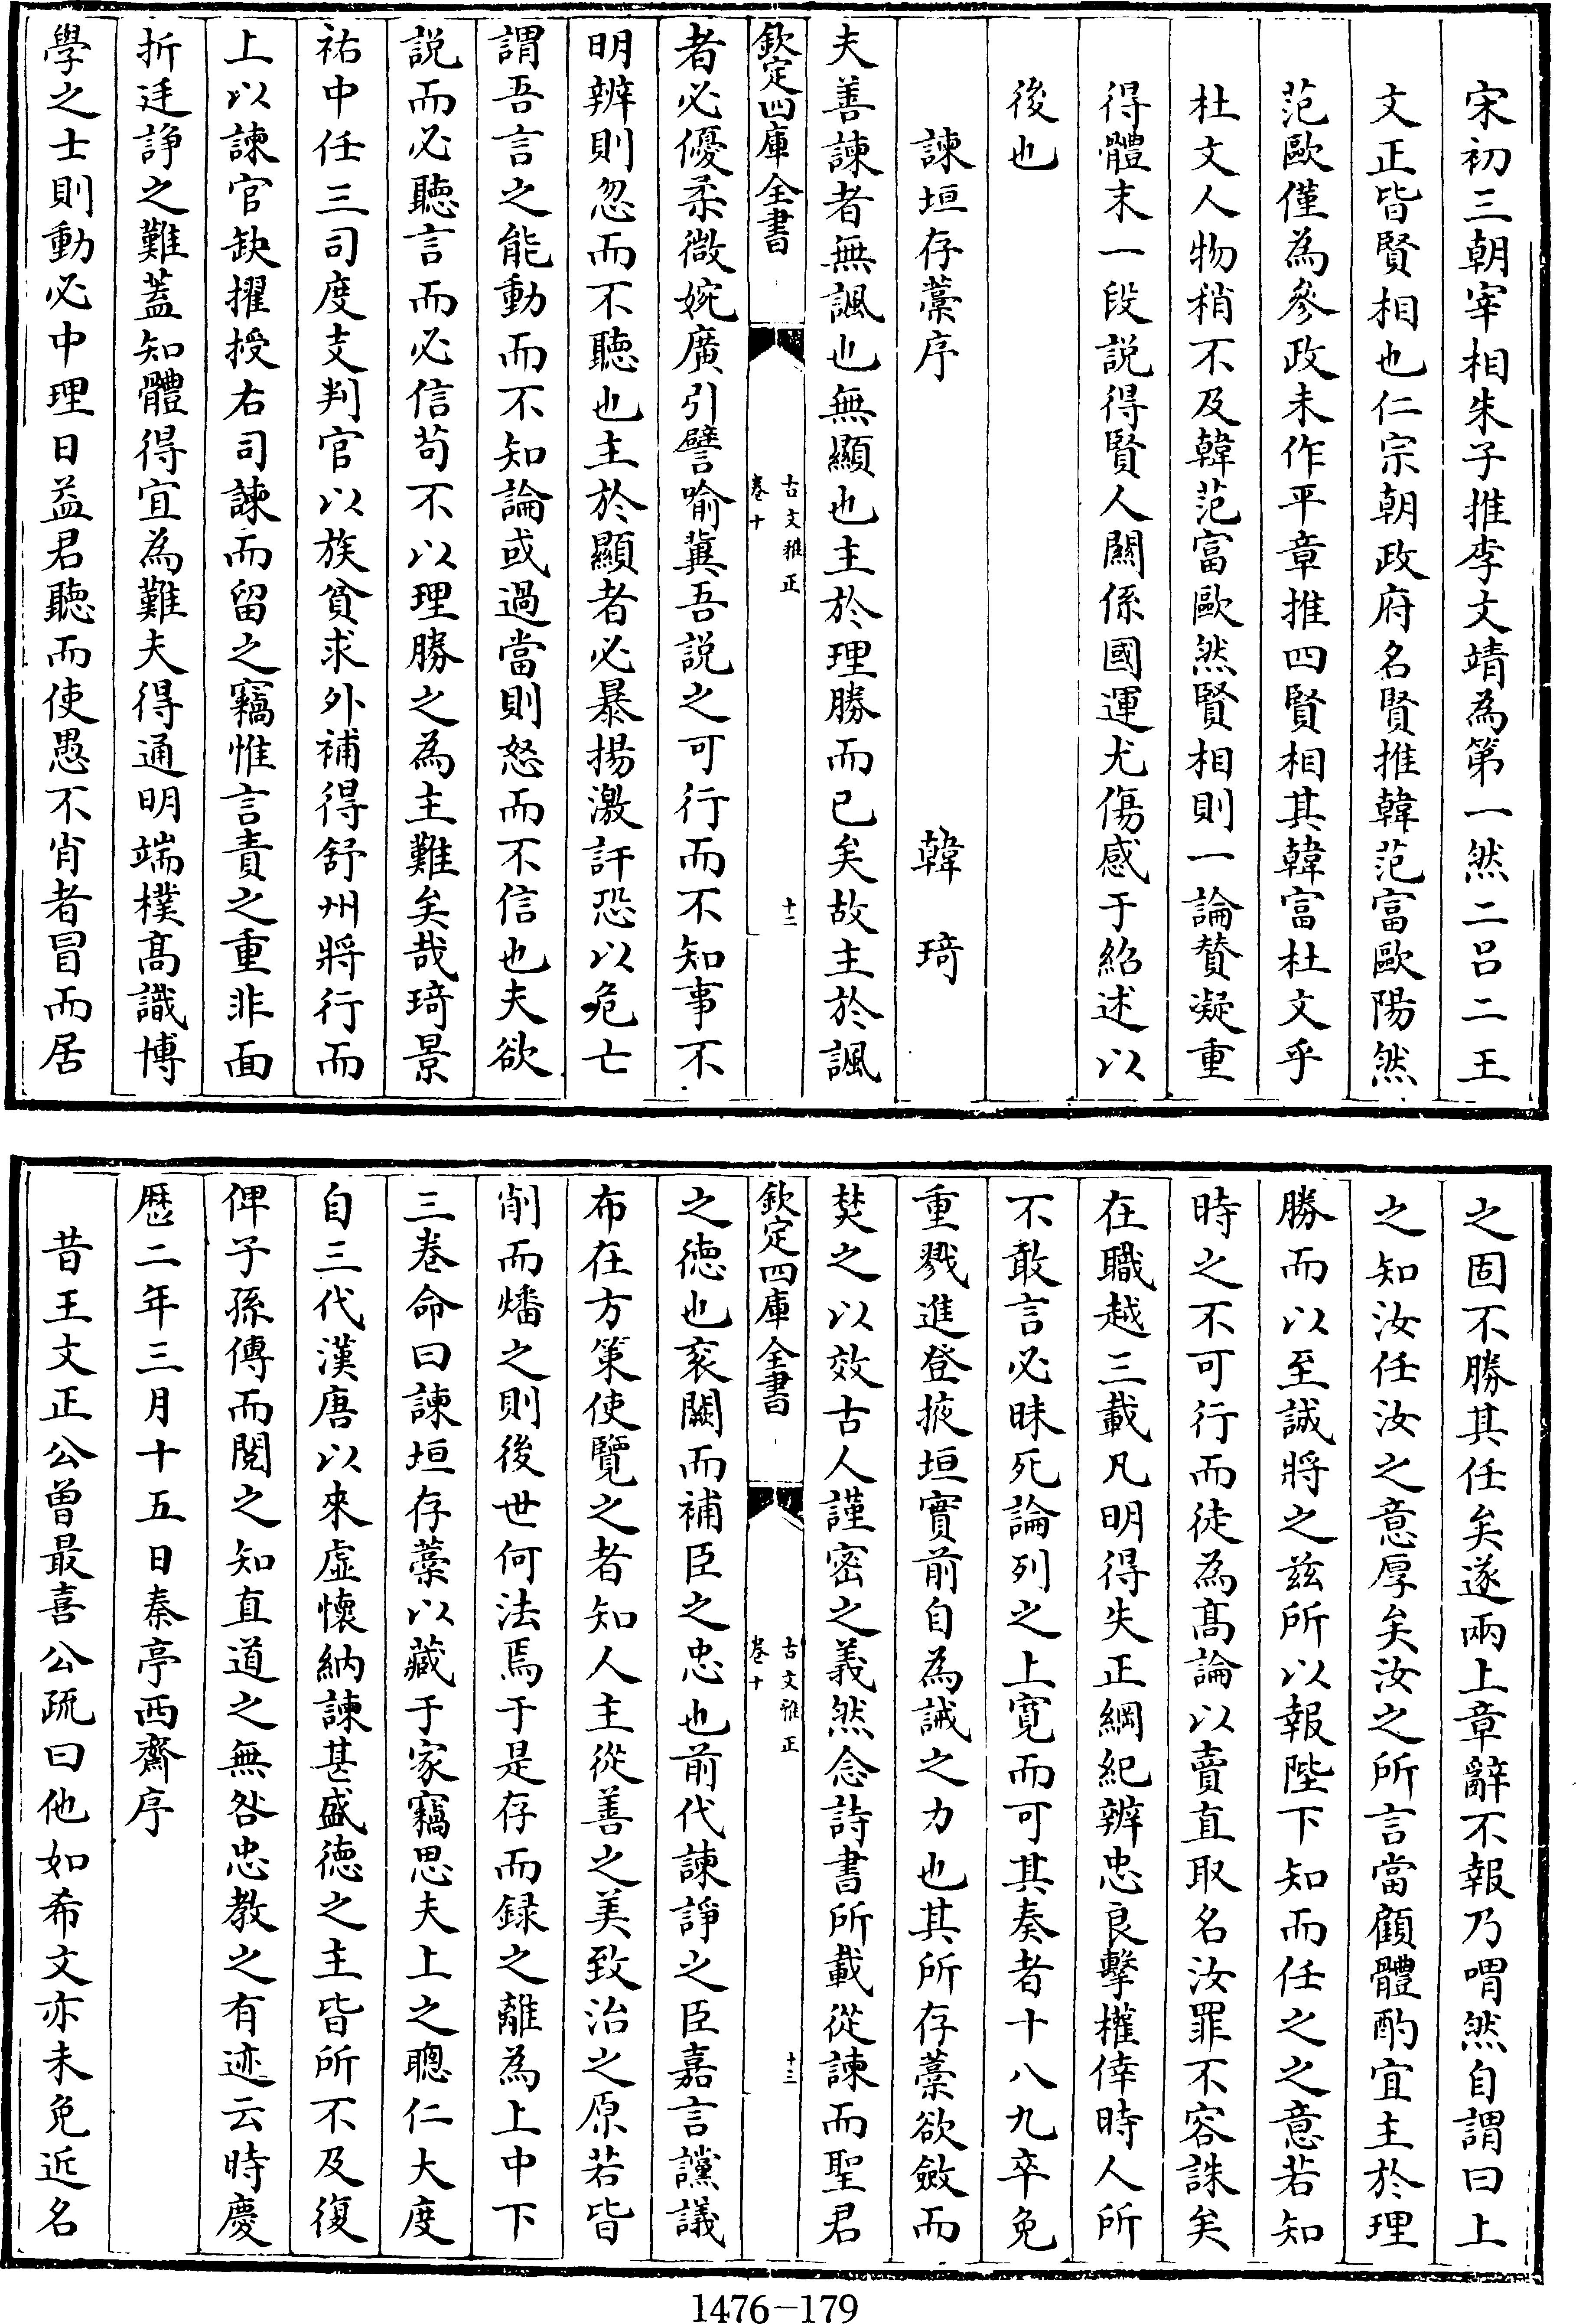 宋初三朝宰相朱子推李文靖為第一然二呂二王
文正皆賢相也仁宗朝政府名賢推韓范富歐陽然
范歐僅為參政未作平章推四賢相其韓富杜文乎
杜文人物稍不及韓范富歐然賢相則一論贊凝重
得體末一段説得賢人關係國運尤傷感于紹述以
後也
諫垣存藁序　韓琦
夫善諫者無諷也無顯也主於理勝而已矣故主於諷
欽定四庫全書　古文雅正　卷十　十二
者必優柔微婉廣引譬喻冀吾説之可行而不知事不
明辨則忽而不聽也主於顯者必暴揚激訐恐以危亡
謂吾言之能動而不知論或過當則怒而不信也夫欲
説而必聽言而必信苟不以理勝之為主難矣哉琦景
祐中任三司度支判官以族貧求外補得舒州將行而
上以諫官缺擢授右司諫而留之竊惟言責之重非面
折廷諍之難蓋知體得宜為難夫得通明端樸髙識博
學之士則動必中理日益君聽而使愚不肖者冒而居
之固不勝其任矣遂兩上章辭不報乃喟然自謂曰上
之知汝任汝之意厚矣汝之所言當顧體酌宜主於理
勝而以至誠將之兹所以報陛下知而任之之意若知
時之不可行而徒為髙論以賣直取名汝罪不容誅矣
在職越三載凡明得失正綱紀辨忠良擊權倖時人所
不敢言必昧死論列之上寛而可其奏者十八九卒免
重戮進登掖垣實前自為誡之力也其所存藁欲斂而
焚之以效古人謹密之義然念詩書所載從諫而聖君
欽定四庫全書　古文雅正　卷十　十三
之德也衮闕而補臣之忠也前代諫諍之臣嘉言讜議
布在方策使覽之者知人主從善之美致治之原若皆
削而燔之則後世何法焉于是存而録之離為上中下
三卷命曰諫垣存藁以藏于家竊思夫上之聰仁大度
自三代漢唐以來虛懷納諫甚盛德之主皆所不及復
俾子孫傳而閲之知直道之無咎忠教之有迹云時慶
歴二年三月十五日秦亭西齋序
昔王文正公曽最喜公疏曰他如希文亦未免近名
1476-179